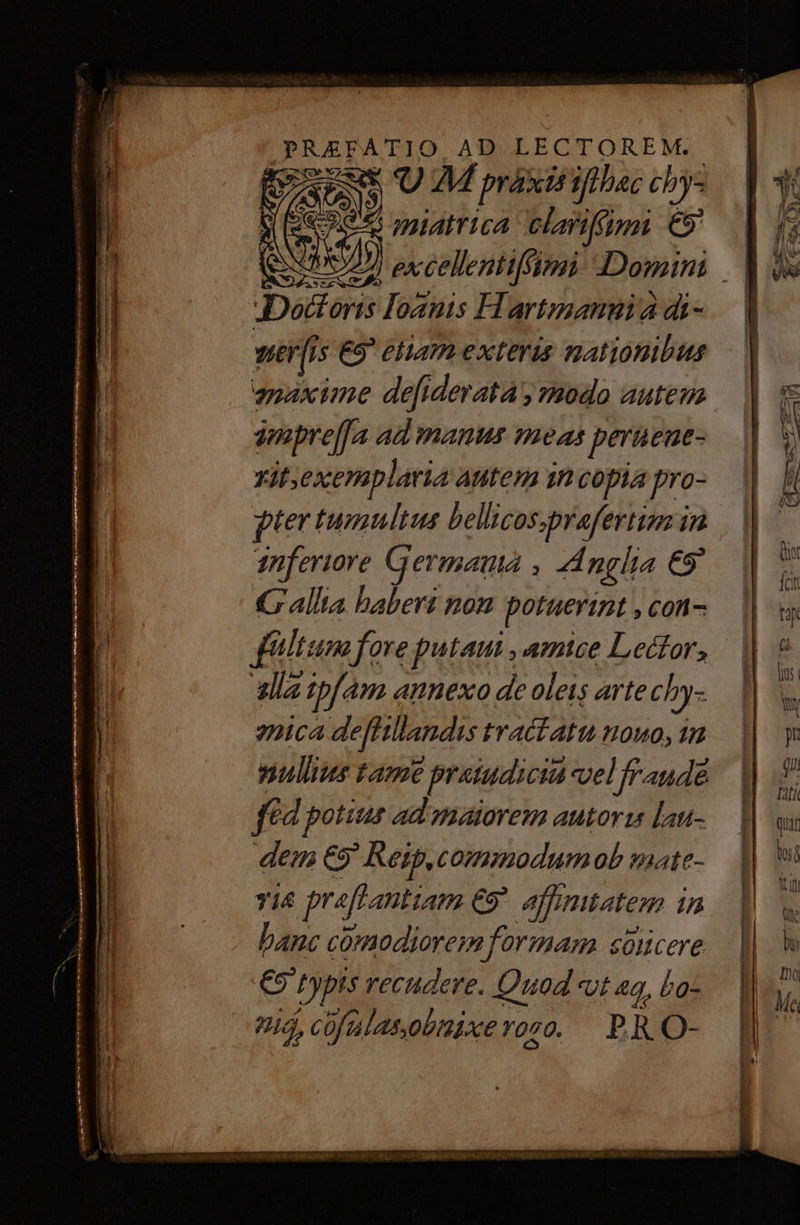 PRÆFATIO AD LECTOREM.
CUM praxis isthæc chy-
miatrica clarißimi &
excellentißimi Domini
Doctoris Ioānis Hartmanni à di-
uersis & etiam exteris nationibus
maxime desiderata, modo autem
impressa ad manus meas peruene-
rit, exemplaria autem in copia pro-
pter tumultus bellicos, præsertim in
inferiore Germaniâ, Angliâ &
Galliâ haberi non potuerint, con-
sultum fore putaui, amice Lector,
illā ipsam annexo de oleis arte chy-
mica destillandis tractatu nouo, in
nullius tamē præiudiciū vel fraudē
sed potius ad maiorem autoris lau-
dem & Reip. commodum ob mate-
riæ præstantiam & affinitatem in
hanc cōmodiorem formam cōiicere
& typis recudere. Quod vt æq, bo-
niq, cōsulas, obnixe rogo. PRO-